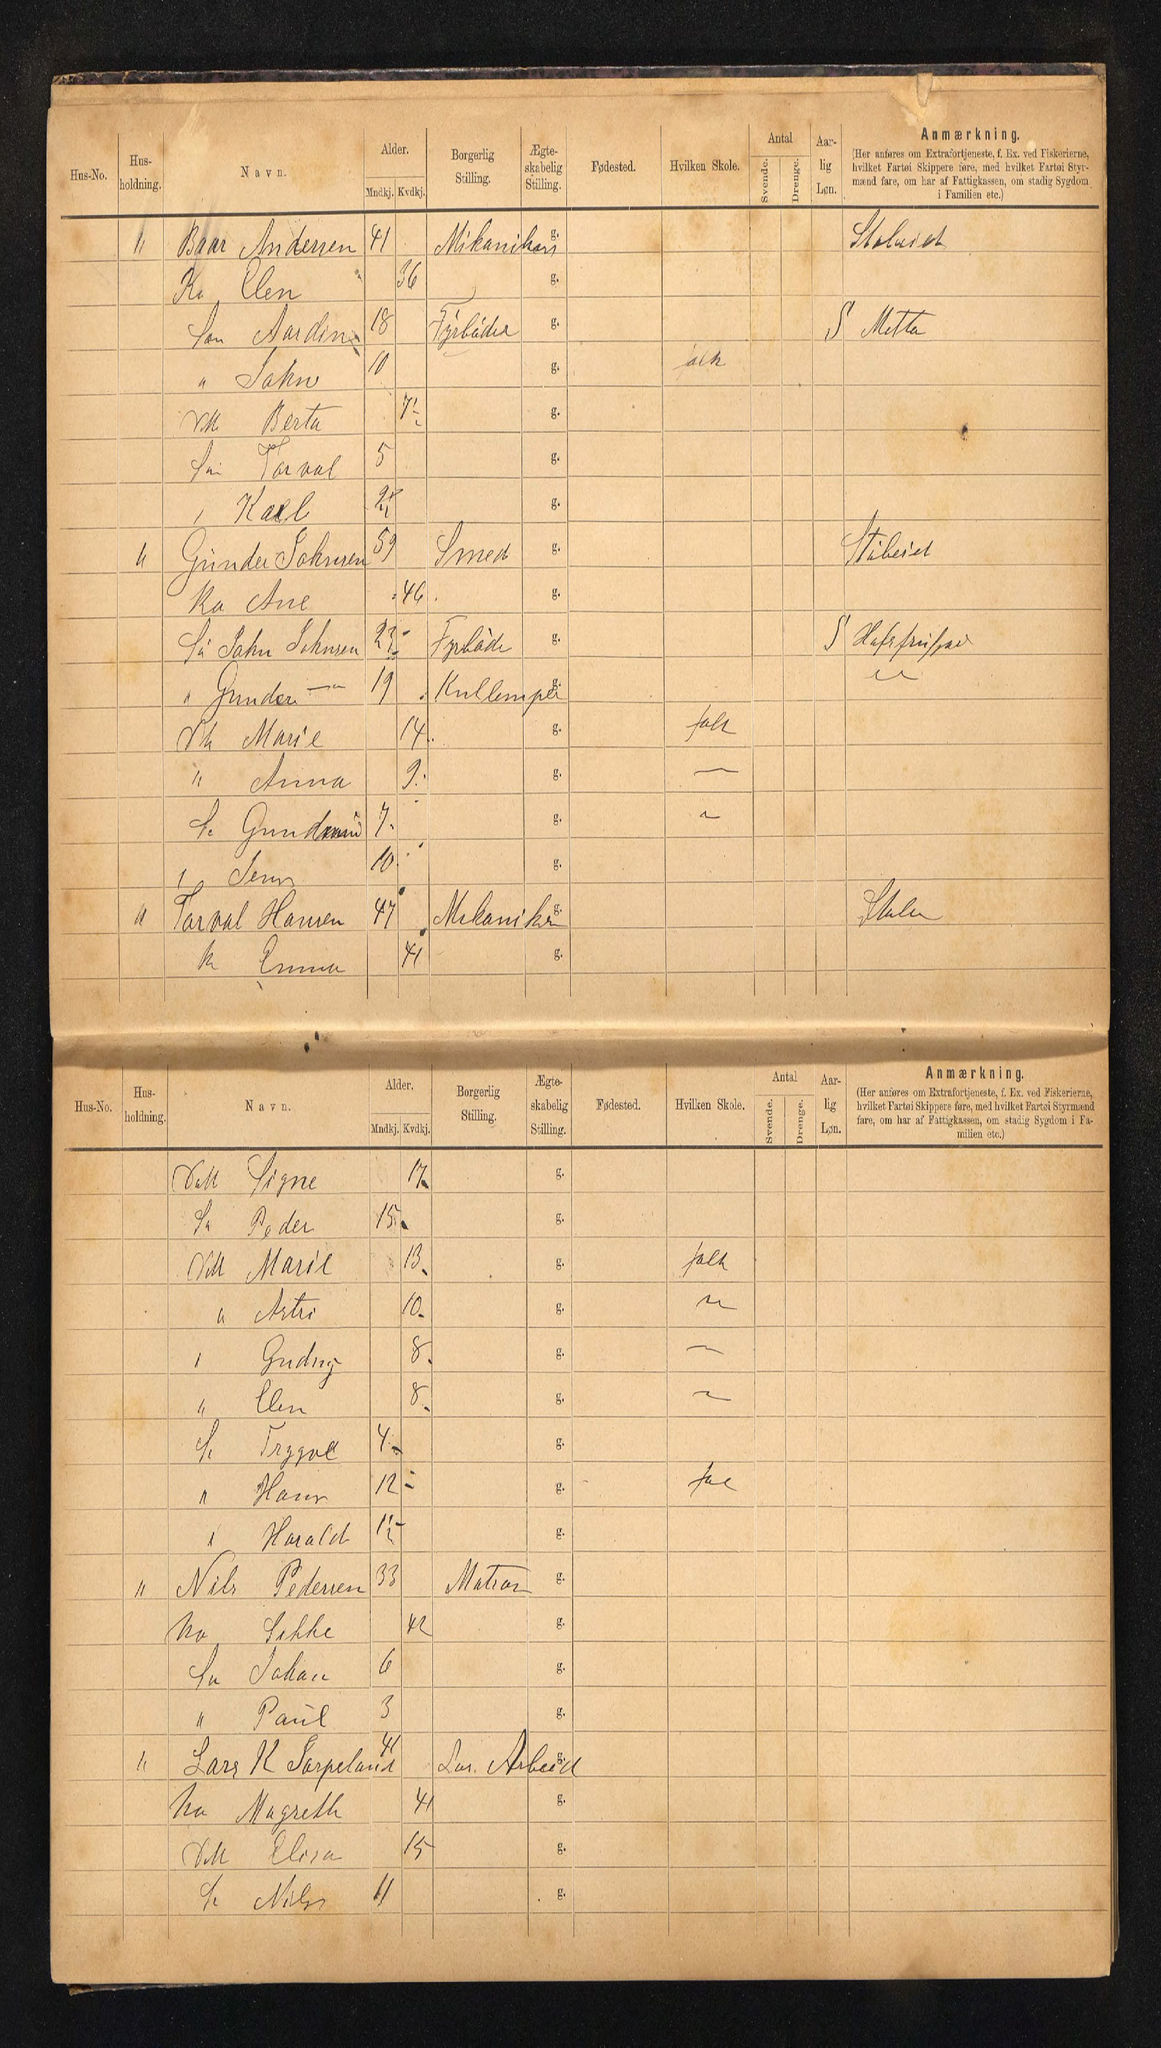 Hus-No. Hus-holdning. Navn. Alder. Mndkj. Kvdkj. Borgerlig Stilling. Ægte-skabelig Stilling. Fødested. Hvilken Skole. Antal Svende. Drenge. Aar-lig Løn. Anmærkning.
(Her anføres om Extrafortjeneste, f. Ex. ved Fiskerierne, hvilket Fartøi Skippere føre, med hvilket Fartøi Styrmænd fare, om har af Fattigkassen, om stadig Sygdom i Familien etc.)
" Andersen 41 g.
Ko Elen 36 g.
Søn 18 Fyrbøder g. S Metta
" John 10 g.
Dtt Berta 7 g.
Søn Torval 5 g.
" Karl 2 g.
" Gunder Johnsen 59 Smed g.
Ko Ane 46 g.
Sø John Johnsen 23 Fyrbøde g. S
" Gunder — 19 Kullemper g.
Dtt Marie 14 g. folk
" Anna 9 g. —
Sø 7 g. ~
" Jens 10 g.
" Torval Hansen 47 Mekaniker g.
Ko Emma 41 g.
Hus-No. Hus-holdning. Navn. Alder. Mndkj. Kvdkj. Borgerlig Stilling. Ægte-skabelig Stilling. Fødested. Hvilken Skole. Antal Svende. Drenge. Aar-lig Løn. Anmærkning.
(Her anføres om Extrafortjeneste, f. Ex. ved Fiskerierne, hvilket Fartøi Skippere føre, med hvilket Fartøi Styrmænd fare, om har af Fattigkassen, om stadig Sygdom i Familien etc.)
Dtt Signe 17 g.
Sø Peder 15 g.
Dtt Marie 13 g. folk
" Astri 10 g. ~
" Gudny 8 g. —
" Elen 8 g. ~
Sø Trygve 4 g.
" Hans 12 g. fol
" Harald 1½ g.
" Nils Pedersen 33 Matros g.
Ko 42 g.
Sø Johan 6 g.
" Paul 3 g.
" Lars K Jørpeland 41 Løs. Arbeid g.
Ko Magreth 41 g.
Dtt Elisa 15 g.
Sø Nils 11 g.